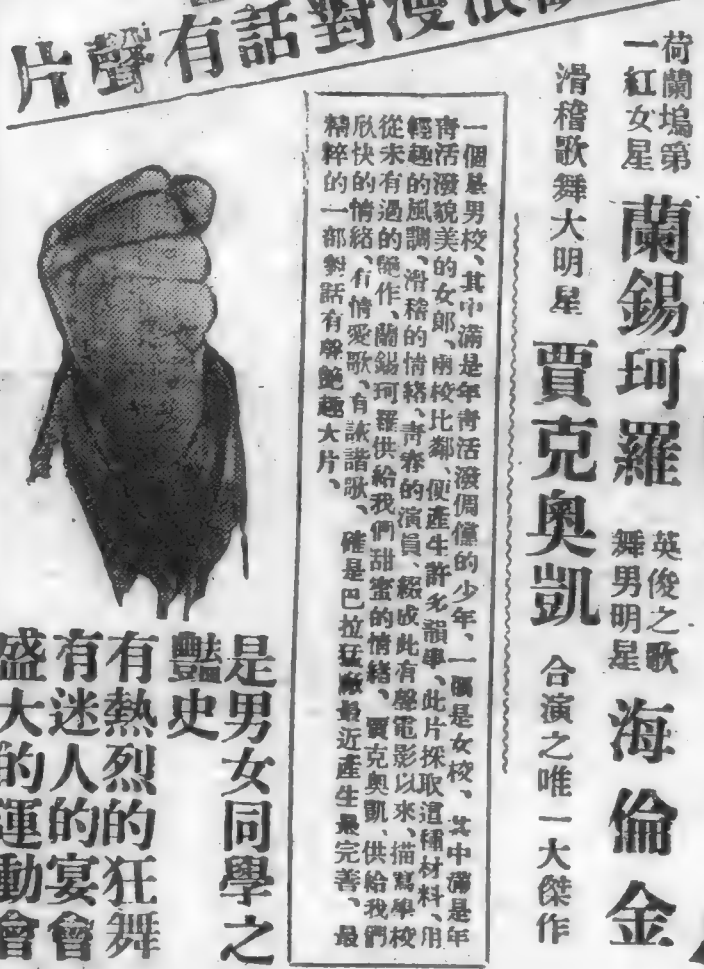 片聲有話對漫浪
荷蘭塢第
一紅女星
蘭錫珂羅
英俊之歌
舞男明星
海倫金
滑稽歌舞大明星
賈克奧凱
合演之唯一大傑作
一個是男校、其中滿是年靑活潑倜儻的少年、一個是女校、其中滿是年
靑活潑貌美的女郞、兩校比鄰、便產生許多韻事、此片採取這種材料、用
輕趣的風調、滑稽的情緒、靑春的演員、綴成此有聲電影以來、描寫學校
從未有過的艶作、蘭錫珂羅供給我們甜蜜的情緖、賈克奧凱、供給我們
欣快的情緖、有情愛歌、有詼諧歌、確是巴拉猛廠最近產生最完善、最
精粹的一部對話有聲艶趣大片、
是男女同學之
豔史
有熱烈的狂舞
有迷人的宴會
盛大的運動會